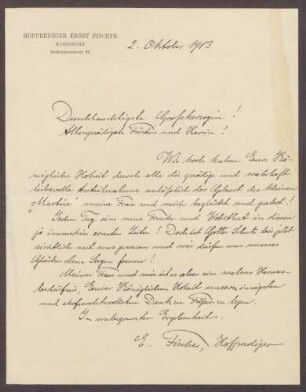 HOFPREDIGER ERNST FISCHER
KARLSRUHE
2. Oktober 1913
Durchlauchtigste Großherzogin!
Allergnädigste Fürstin und Herrin!
Wie hoch haben Eure Kö-
nigliche Hoheit durch alle die gnädige und wahrhaft
liebevolle Anteilnahme anläßlich der Geburt des kleinen
Martin meine Frau und mich beglückt und geehrt!
Jeden Tag eine neue Freude und Wohltat in diesen
ja immerhin ernsten Zeiten! Dabei ist Gottes Schutz bis jetzt
sichtlich mit uns gewesen und wir dürfen uns unseres
Glückes ohne Sorgen freuen!
Meiner Frau und mir ist es aber ein wahres Herzens-
bedürfnis, Eurer Königlichen Hoheit unseren innigsten
und ehrfurchtsvollsten Dank zu Füßen zu legen.
In unbegrenzter Ergebenheit
E. Fischer, Hofprediger